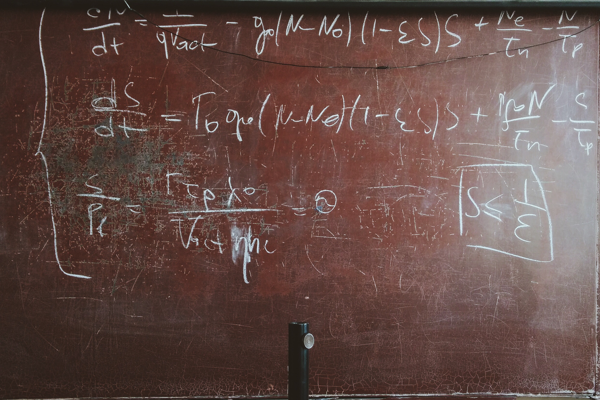 dN/dt = I/qVact - g₀(N-N₀)(1-εS)S + Ne/τn - N/τp
dS/dt = Γ₀g₀(N-N₀)(1-εS)S + N/τn - S/τp
S/Pf = Γτpλ₀/Vact ηhc = S ≤ 1/ε